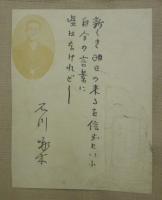 新しき明日の来るを信ずといふ
自分の言葉に
嘘はなけれど――
石川啄木